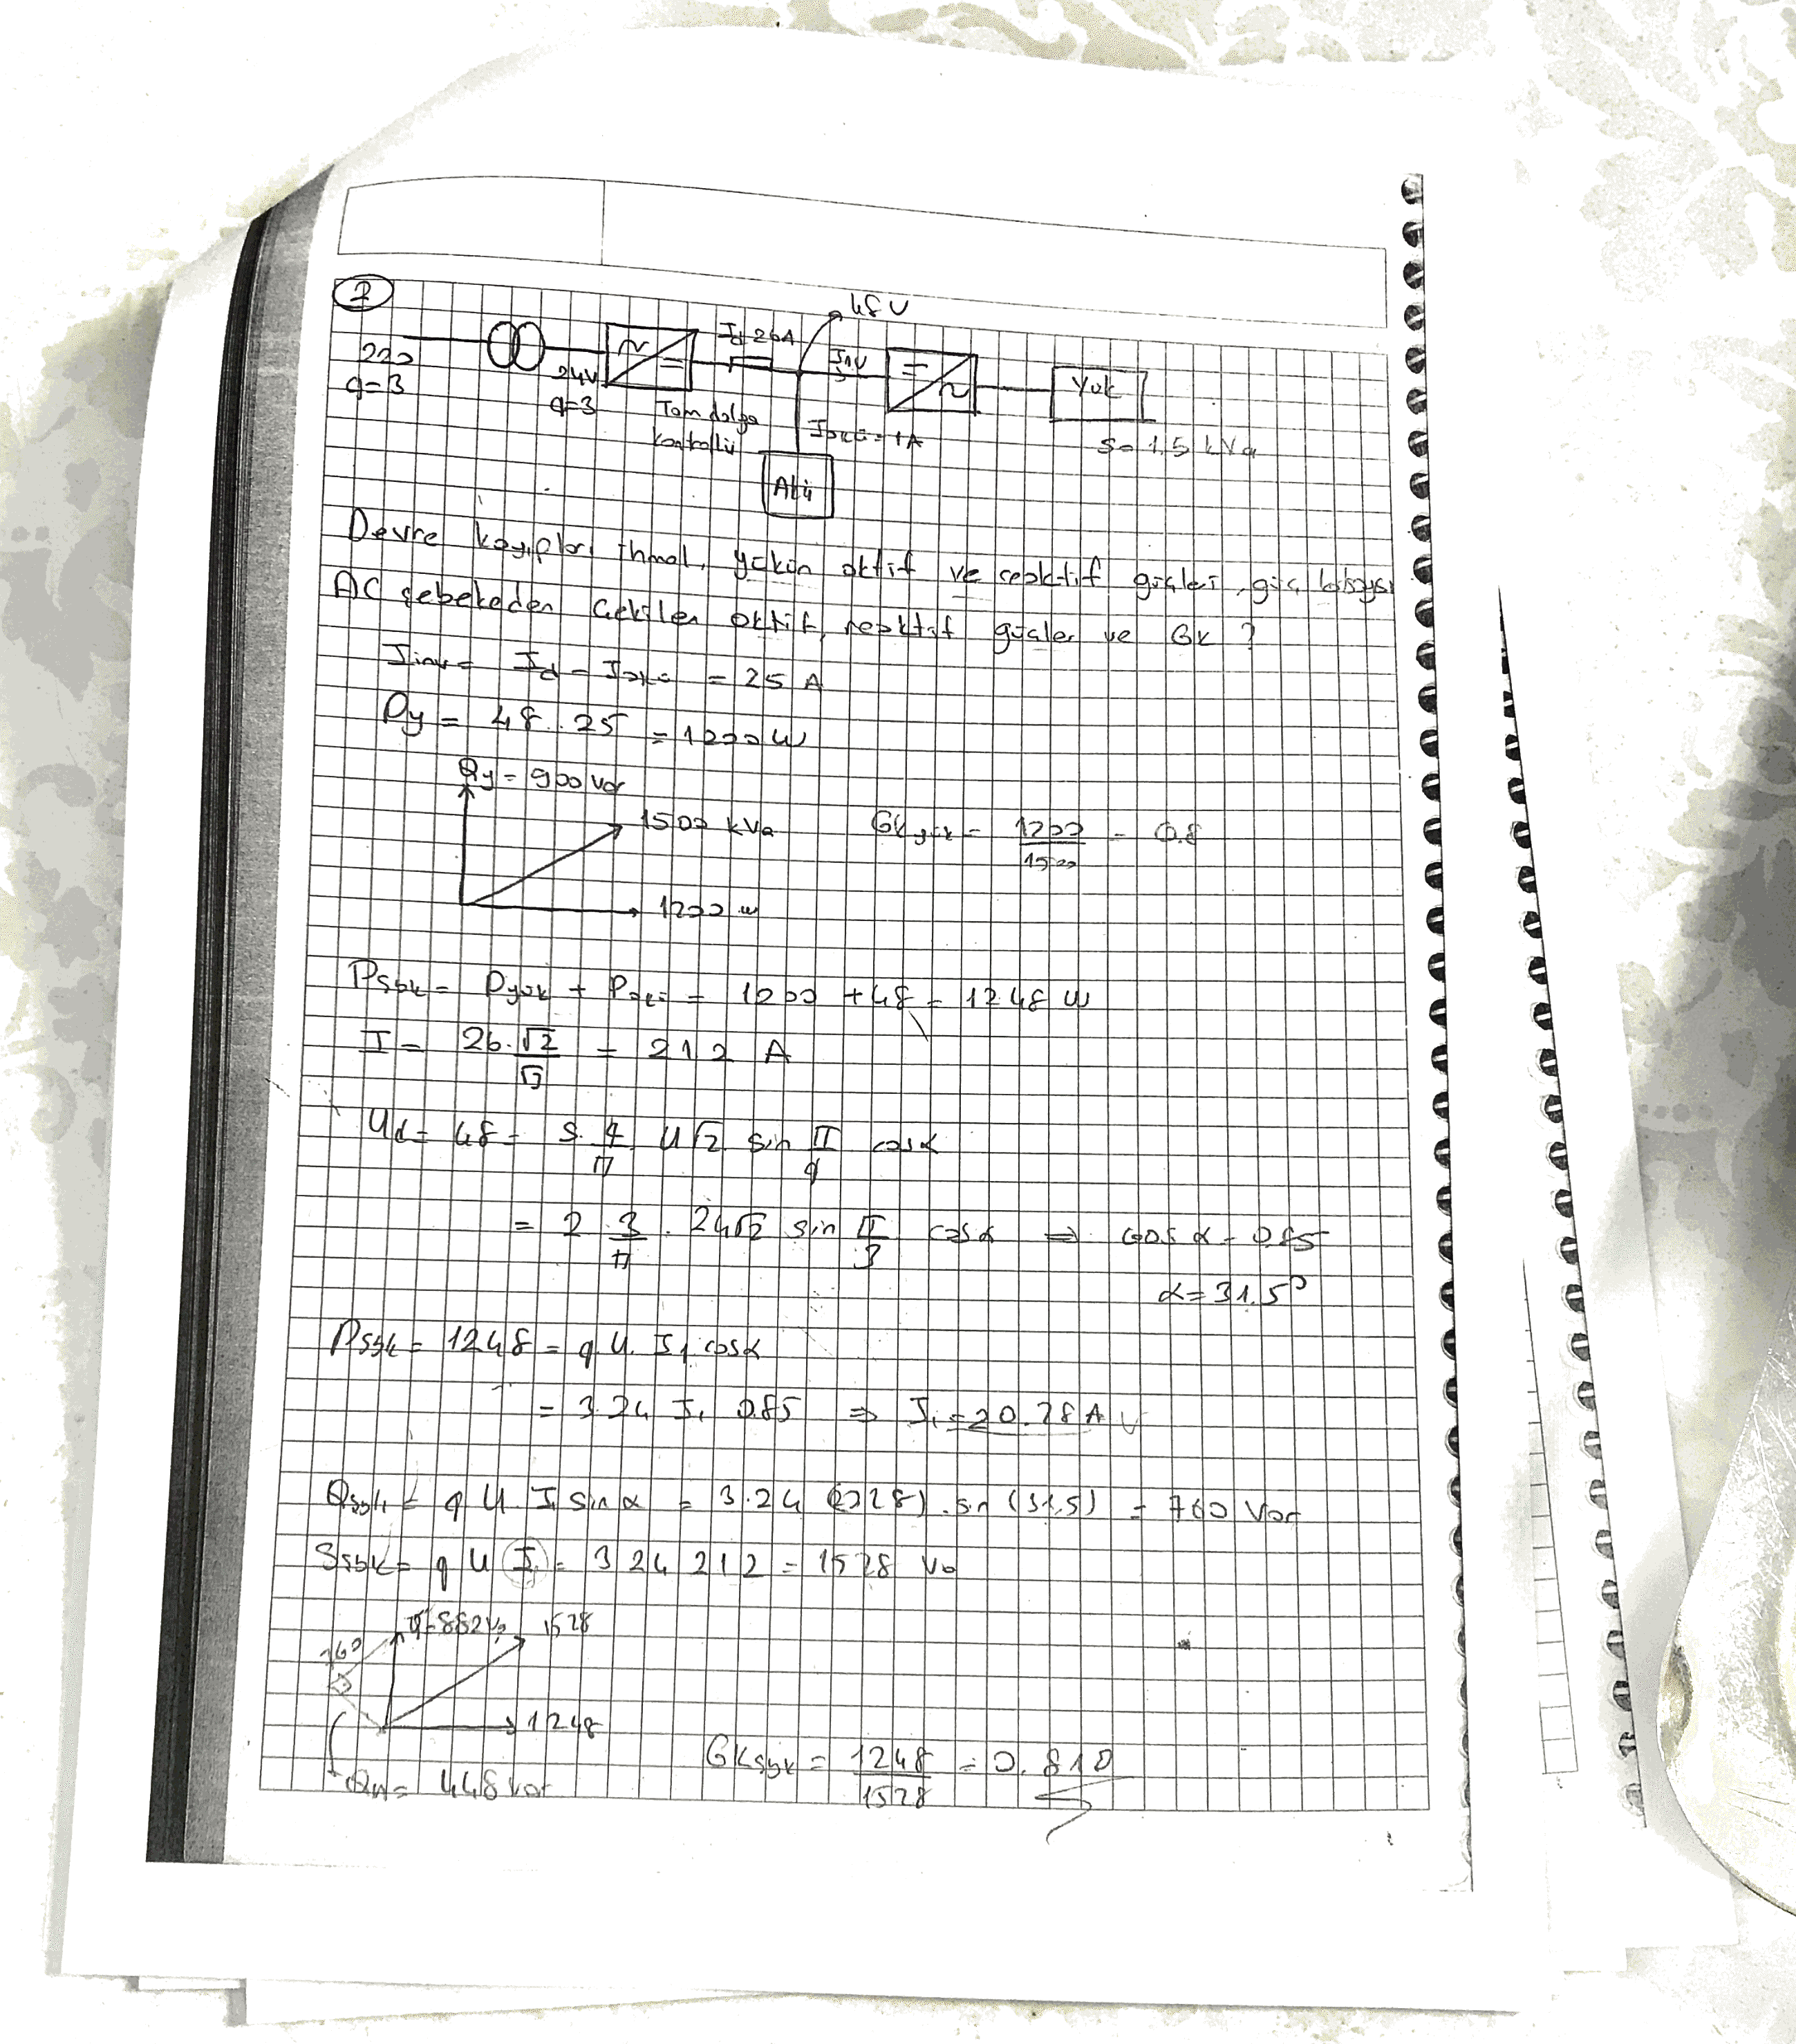 1
48 V
220
q=3
24V
q=3
Tam dalga
kontrollü
Id 26A
Akü
Yük
S= 1.5 kVa
Devre kayıpları ihmal, yükün aktif ve reaktif güçleri, güç katsayısı
AC şebekeden çekilen aktif, reaktif güçler ve GK ?
Iinv = Id - Iakü = 25 A
Py = 48 . 25 = 1200 W
Qy = 900 Var
1500 kVa
GKyük = 1200/1500 = 0.8
1200 w
Psbk = Pyük + Pakü = 1200 + 48 = 1248 W
I = 26. √2/√3 = 212 A
Ud = 48 = s. q/π U√2 sin π/q cosα
= 2 . 3/π . 24√2 sin π/3 cosα ⇒ cos α = 0.85
α = 31.5°
Psbk = 1248 = q U. I1 cosα
= 3.24 I1 0.85 ⇒ I1 = 20.28 A
Qsbk1 = q U. I1 sinα = 3.24 (20.28) . sin (31.5) = 760 Var
Ssbk = q U I = 3 24 212 = 1528 Va
Q=882Va 1528
760
1248
GKsbk = 1248/1528 = 0.810
QH = 448 Var